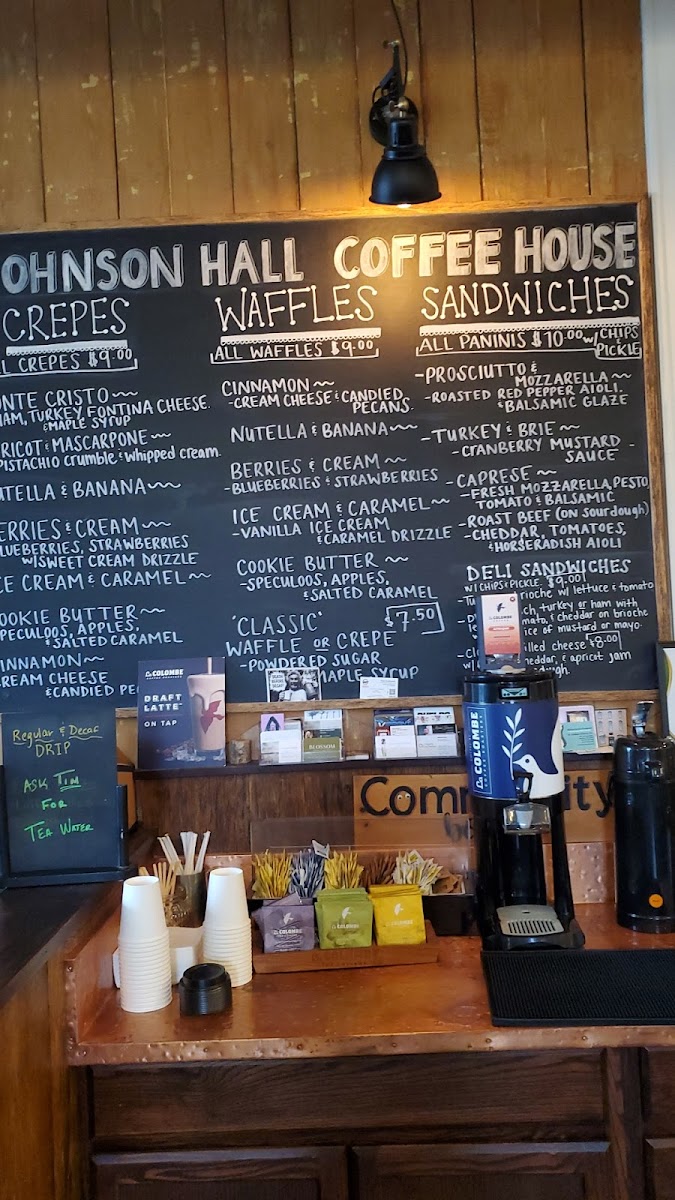 OHNSON HALL COFFEE HOUSE
CREPES
L CREPES $9.00
ONTE CRISTO
HAM, TURKEY, FONTINA CHEESE.
& MAPLE SYRUP
RICOT & MASCARPONE
PISTACHIO CRUMBLE & WHIPPED CREAM.
UTELLA & BANANA
ERRIES & CREAM
LUEBERRIES, STRAWBERRIES
W/SWEET CREAM DRIZZLE
CE CREAM & CARAMEL
OOKIE BUTTER
SPECULOOS, APPLES,
& SALTED CARAMEL
INNAMON
REAM CHEESE
& CANDIED PE
WAFFLES
ALL WAFFLES $9.00
CINNAMON
-CREAM CHEESE & CANDIED
PECANS.
NUTELLA & BANANA
BERRIES & CREAM
-BLUEBERRIES & STRAWBERRIES
ICE CREAM & CARAMEL
-VANILLA ICE CREAM
& CARAMEL DRIZZLE
COOKIE BUTTER
-SPECULOOS, APPLES,
& SALTED CARAMEL
"CLASSIC" $7.50
WAFFLE OR CREPE
-POWDERED SUGAR
MAPLE SYRUP
SANDWICHES
ALL PANINIS $10.00 W/ CHIPS
& PICKLE
-PROSCIUTTO &
MOZZARELLA
-ROASTED RED PEPPER AIOLI.
& BALSAMIC GLAZE
-TURKEY & BRIE
-CRANBERRY MUSTARD -
SAUCE
-CAPRESE
-FRESH MOZZARELLA, PESTO,
TOMATO & BALSAMIC
-ROAST BEEF (ON SOURDOUGH)
-CHEDDAR, TOMATOES,
& HORSERADISH AIOLI
DELI SANDWICHES
W/ CHIPS & PICKLE. $9.00
brioche w/ lettuce & tomato
turkey or ham with
& cheddar on brioche
of mustard or mayo.
grilled cheese $8.00
cheddar, & apricot jam
LA COLOMBE
DRAFT
LATTE
ON TAP
Regular & Decaf
DRIP
ASK TIM
FOR
TEA WATER
BLOSSOM
LA COLOMBE
Com ity
LA COLOMBE
LA COLOMBE
LA COLOMBE